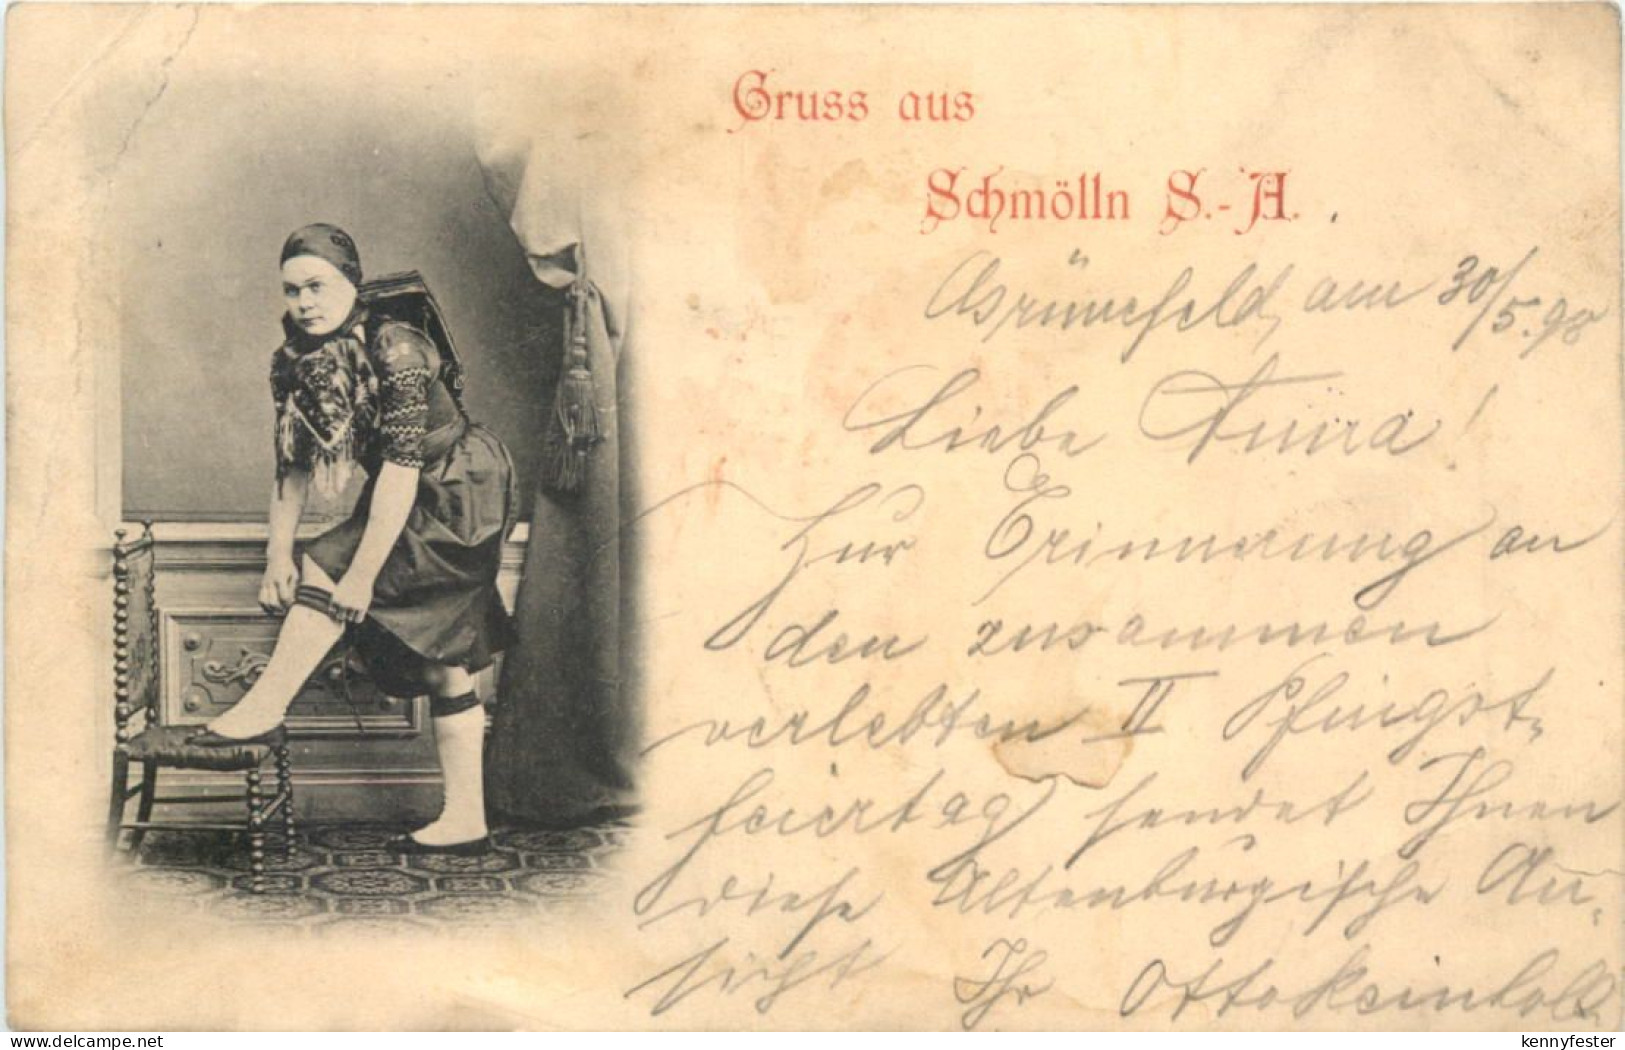 Gruss aus
Schmölln S.-A.
am 30/5.98
Liebe Anna!
Zur Erinnerung an
den zusammen
verlebten II Pfingst-
feiertag sendet Ihnen
diese Altenburgische An-
sicht Ihr Otto Reinhold
delcampe.net
kennyfester